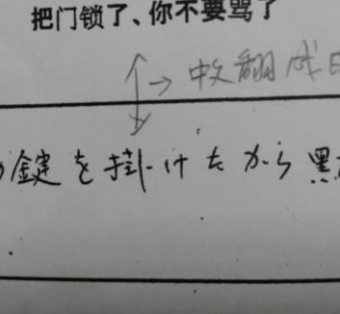 把门锁了、你不要骂了
→ 中文翻成日
鍵を掛けたから黙